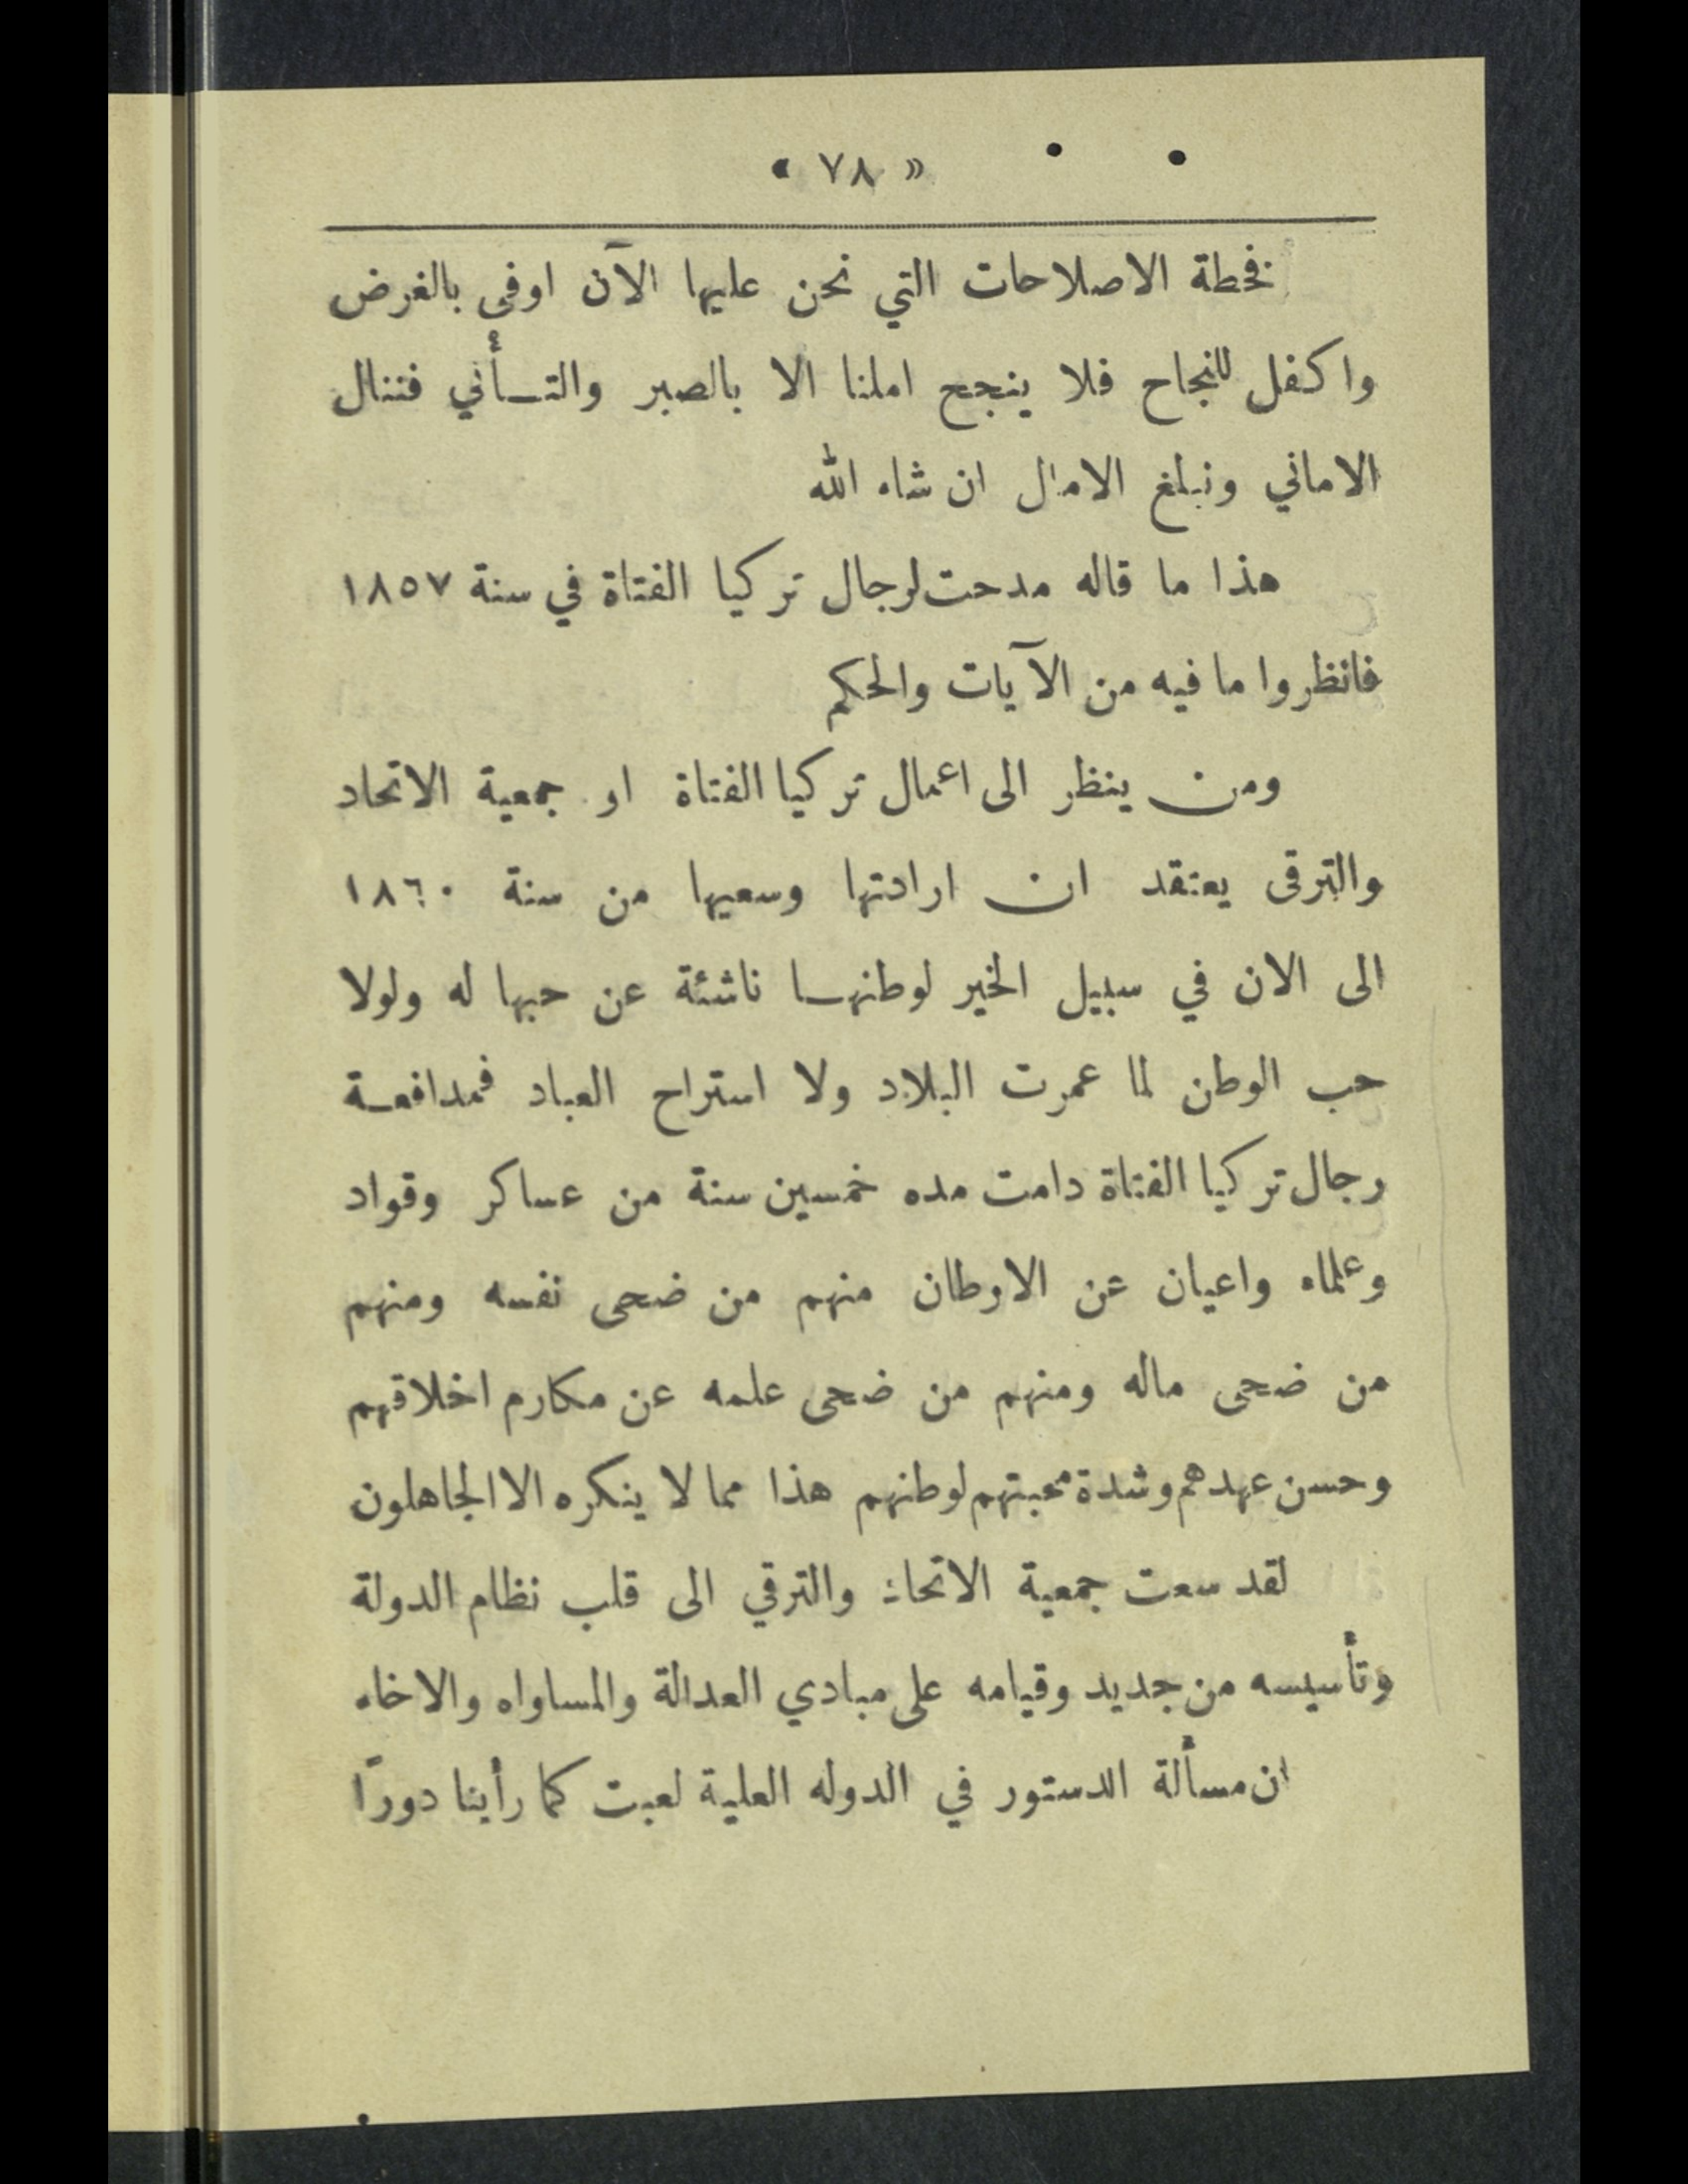 « ٧٨ »
فخطة الاصلاحات التي نحن عليها الآن اوفى بالغرض
واكفل للنجاح فلا ينجح املنا الا بالصبر والتـأني فننال
الاماني ونبلغ الامال ان شاء الله
هذا ما قاله مدحت لرجال تركيا الفتاة في سنة ١٨٥٧
فانظروا ما فيه من الآيات والحكم
ومن ينظر الى اعمال تركيا الفتاة او جمعية الاتحاد
والترقى يعتقد ان ارادتها وسعيها من سنة ١٨٦٠
الى الان في سبيل الخير لوطنها ناشئة عن حبها له ولولا
حب الوطن لما عمرت البلاد ولا استراح العباد فمدافعة
رجال تركيا الفتاة دامت مده خمسين سنة من عساكر وقواد
وعلماء واعيان عن الاوطان منهم من ضحى نفسه ومنهم
من ضحى ماله ومنهم من ضحى علمه عن مكارم اخلاقهم
وحسن عهدهم وشدة محبتهم لوطنهم هذا مما لا ينكره الا الجاهلون
لقد سعت جمعية الاتحاد والترقي الى قلب نظام الدولة
وتأسيسه من جديد وقيامه على مبادي العدالة والمساواه والاخاء
ان مسألة الدستور في الدوله العلية لعبت كما رأينا دورًا